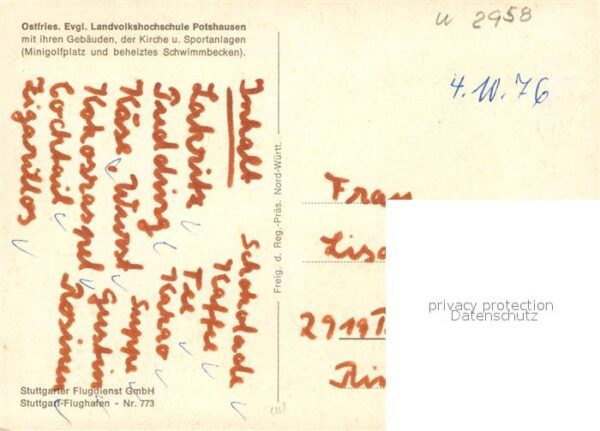 Ostfries. Evgl. Landvolkshochschule Potshausen
mit ihren Gebäuden, der Kirche u. Sportanlagen
(Minigolfplatz und beheiztes Schwimmbecken).
W 2958
4.10.76
Inhalt
Lakritz
Pudding
Käse, Wurst
Kokosraspel
Cocktail
Zigarillos
Schokolade
Kaffee
Tee
Kakao
Suppe
Gustin
Rosinen
Freig. d. Reg.-Präs. Nord-Württ.
Frau
Lisa
2919
Stuttgarter Flugdienst GmbH
Stuttgart-Flughafen - Nr. 773
privacy protection
Datenschutz